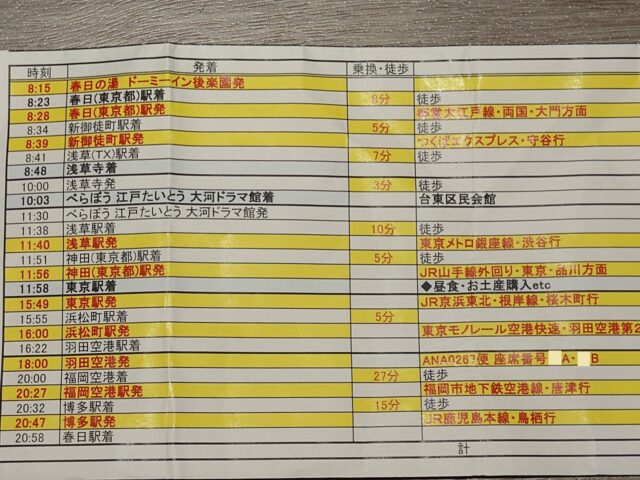 時刻 発着 乗換・徒歩
8:15 春日の湯 ドーミーイン後楽園発
8:23 春日(東京都)駅着 8分 徒歩
8:28 春日(東京都)駅発 都営大江戸線・両国・大門方面
8:34 新御徒町駅着 5分 徒歩
8:39 新御徒町駅発 つくばエクスプレス・守谷行
8:41 浅草(TX)駅着 7分 徒歩
8:48 浅草寺着
10:00 浅草寺発 3分 徒歩
10:03 べらぼう 江戸たいとう 大河ドラマ館着 台東区民会館
11:30 べらぼう 江戸たいとう 大河ドラマ館発
11:38 浅草駅着 10分 徒歩
11:40 浅草駅発 東京メトロ銀座線・渋谷行
11:51 神田(東京都)駅着 5分 徒歩
11:56 神田(東京都)駅発 JR山手線外回り・東京・品川方面
11:58 東京駅着 ◆昼食・お土産購入etc
15:49 東京駅発 JR京浜東北・根岸線・桜木町行
15:55 浜松町駅着 5分 徒歩
16:00 浜松町駅発 東京モノレール空港快速・羽田空港第2
16:22 羽田空港駅着
18:00 羽田空港発 ANA0267便 座席番号 A・ B
20:00 福岡空港着 27分 徒歩
20:27 福岡空港駅発 福岡市地下鉄空港線・唐津行
20:32 博多駅着 15分 徒歩
20:47 博多駅発 JR鹿児島本線・鳥栖行
20:58 春日駅着
計